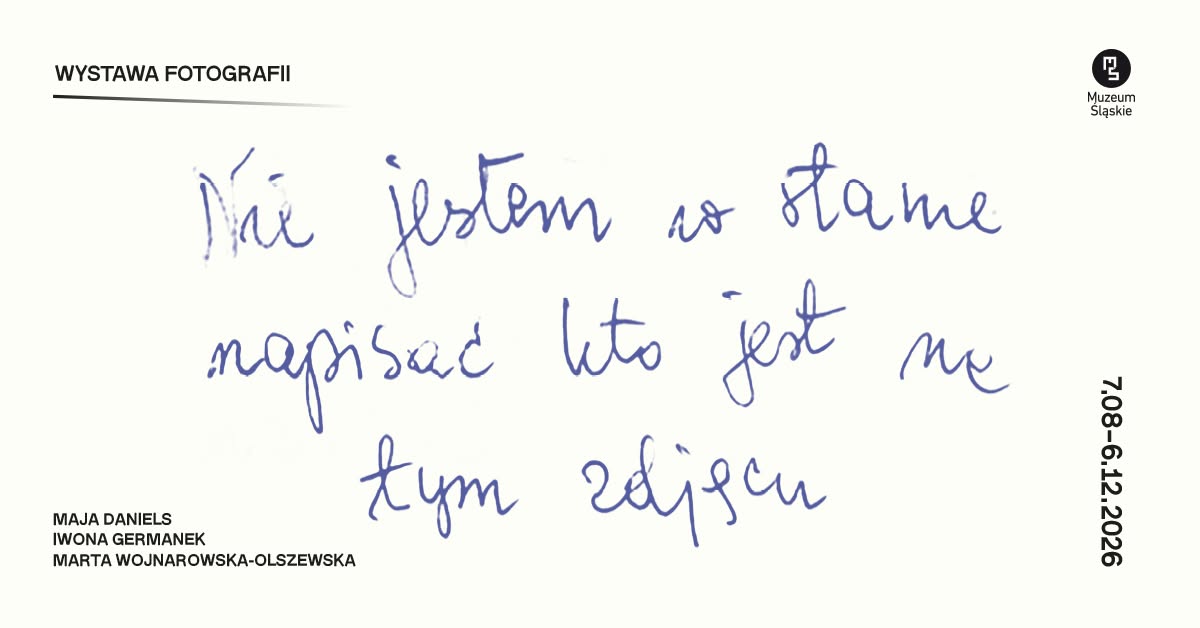 WYSTAWA FOTOGRAFII
Muzeum
Śląskie
Nie jestem w stanie
napisać kto jest na
tym zdjęciu
MAJA DANIELS
IWONA GERMANEK
MARTA WOJNAROWSKA-OLSZEWSKA
7.08–6.12.2026